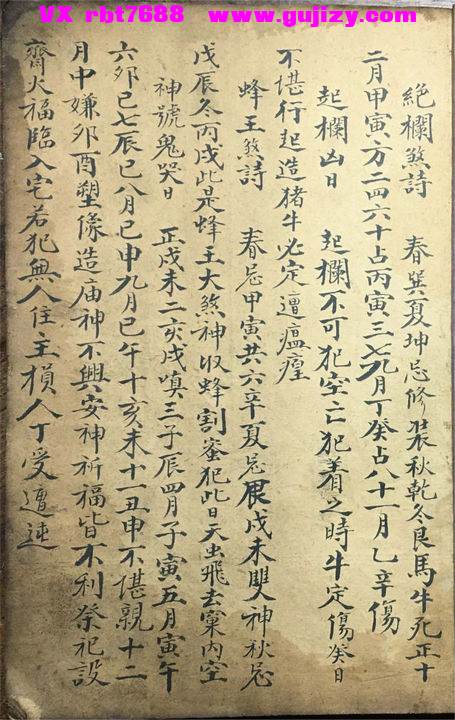 VX rbt7688 www.gujizy.com
絕欄煞詩 春巽夏坤忌修裝秋乾冬艮馬牛死正十
二月甲寅方二四六十占丙寅三七九月丁癸占八十一月乙辛傷
起欄凶日 起欄不可犯空亡犯着之時牛定傷癸日
不堪行起造猪牛必定遭瘟瘽
蜂王煞詩 春忌甲寅共六辛夏忌戊未雙神秋忌
戊辰冬丙戌此是蜂王大煞神収蜂割蜜犯此日天虫飛去窠内空
神號鬼哭日 正戌未二亥戌嗔三子辰四月子寅五月寅午
六夘巳七辰巳八月巳申九月巳午十亥未十一丑申不堪親十二
月中嫌夘酉塑像造庙神不興安神祈福皆不利祭祀設
齋火福臨入宅若犯無人住主損人丁受遭迍